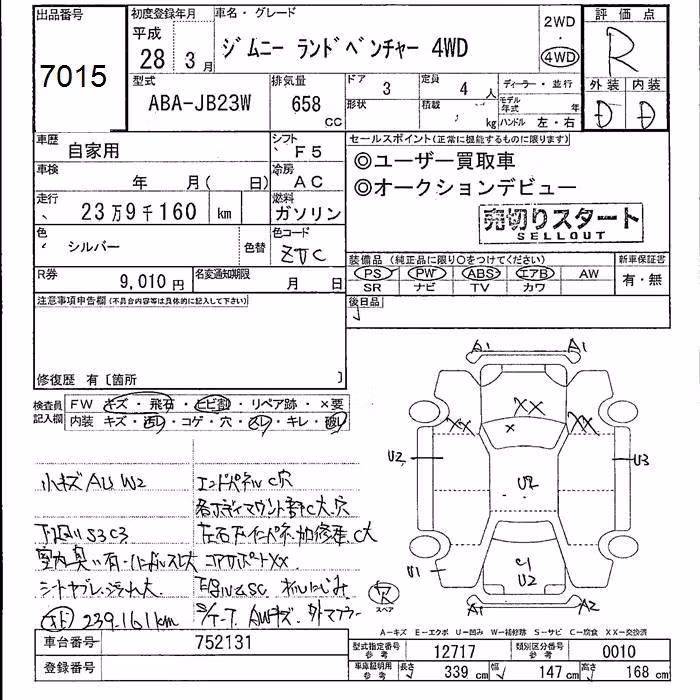 出品番号 初度登録年月 車名・グレード 2WD 評価点
7015 平成 28 3月 ジムニー ランドベンチャー 4WD 4WD R
型式 排気量 ドア 3 定員 4人 ディーラー・並行 外装 内装
ABA-JB23W 658 cc 形状 積載 kg モデル年式 年 ハンドル 左・右 D D
車歴 自家用 シフト F5 セールスポイント(正常に機能するものに限ります)
車検 年 月( 日) 冷房 AC ◎ユーザー買取車
走行 23万9千160 km 燃料 ガソリン ◎オークションデビュー
売切りスタート
SELLOUT
色 シルバー 色替 色コード ZJC
装備品(純正品に限り○をつけてください) 新車保証書
PS PW ABS エアB AW 有・無
SR ナビ TV カワ
R券 9,010円 名変通知期限 月 日
注意事項申告欄(不具合内容等は具体的に記入して下さい) 後日品
修復歴 有〔箇所 〕
検査員記入欄 FW キズ・飛石・ヒビ割・リペア跡・X要
内装 キズ・汚れ・コゲ・穴・スレ・キレ・破レ
A1 A1
XX XX XX
X
U2 U2 U3
U1 U2
A1 A2
スペア
小キズ AU W2 エンドパネルC穴
各ボディマウント部C大、穴
下回りS3C3 左右インパネ加修歴 C大
室内臭い有 コアサポートXX
シートヤブレ、汚れ大 下回りSC オイルにじみ
メーター 239.161km AWキズ 外マフラー
A-キズ E-エクボ U-凹み W-補修跡 S-サビ C-腐食 XX-交換済
車台番号 752131 型式指定番号 参考 12717 類別区分番号 参考 0010
登録番号 車庫証明用 参考 長さ 339 cm 幅 147 cm 高さ 168 cm